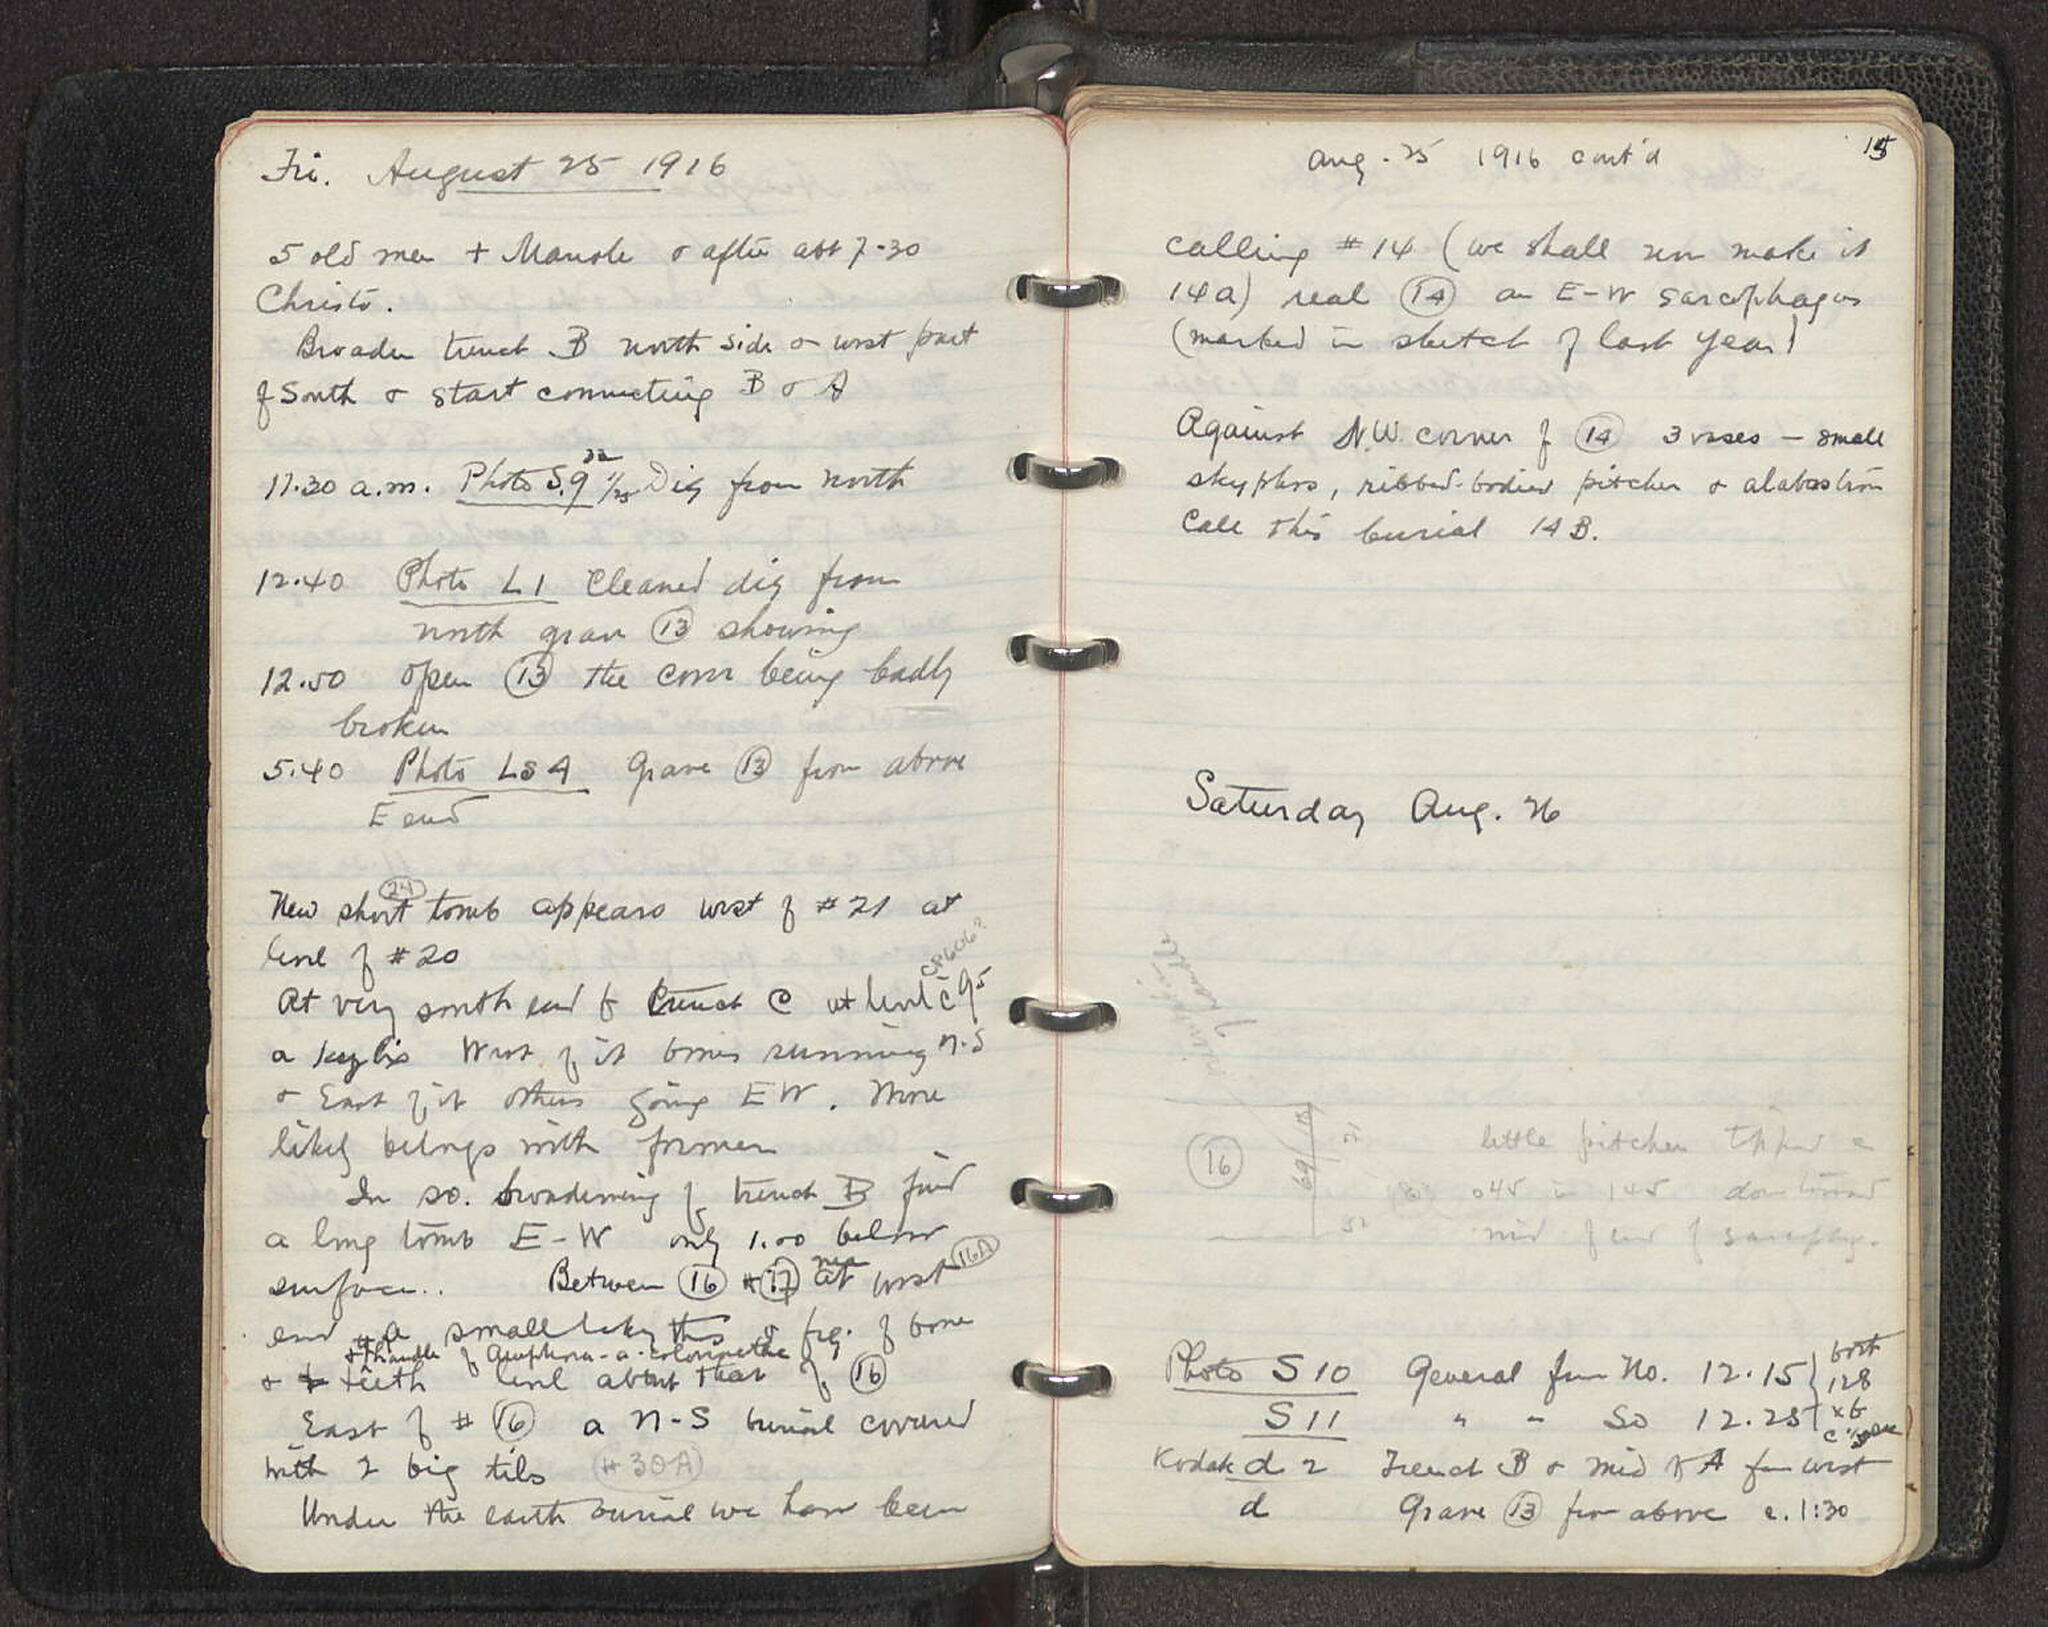 Fri. August 25 1916
5 old men + Manole & after abt 7.30
Christo.
Broaden trench B north side & west part
of South & start connecting B & A
11.30 a.m. Photo S.9 1/25 Dig from north
12.40 Photo L1 Cleaned dig from
north grave 13 showing
12.50 open 13 the cover being badly
broken
5.40 Photo LS4 Grave 13 from above
E end
24
New short tomb appears west of #21 at
level of #20
CP606?
At very south end of trench C at level c 95
a kylix West of it bones running N-S
& East of it others going EW. More
likely belongs with former
In so. broadening of trench B find
a long tomb E-W only 1.00 below
surface.. Between 16 & 17 near west 16A
end a small lekythos & frg. of bone
+ handle of Amphora-a-colonnette
& teeth level about that of 16
East of # 16 a N-S burial covered
with 2 big tiles (#30A)
Under the earth burial we have been
Aug. 25 1916 cont'd
15
calling #14 (we shall now make it
14a) real 14 an E-W sarcophagus
(marked in sketch of last year)
Against N.W. corner of 14 3 vases - small
skyphos, ribbed-bodied pitcher & alabastron
Call this burial 14B.
Saturday Aug. 26
16
69
51
52
little pitcher tipped
045 in 145 downward
mid of end of sarcophg.
Photo S 10 General from No. 12.15
S 11 " " So 12.25
128
Kodak d 2 Trench B & mid of A from west
d Grave 13 from above c. 1:30